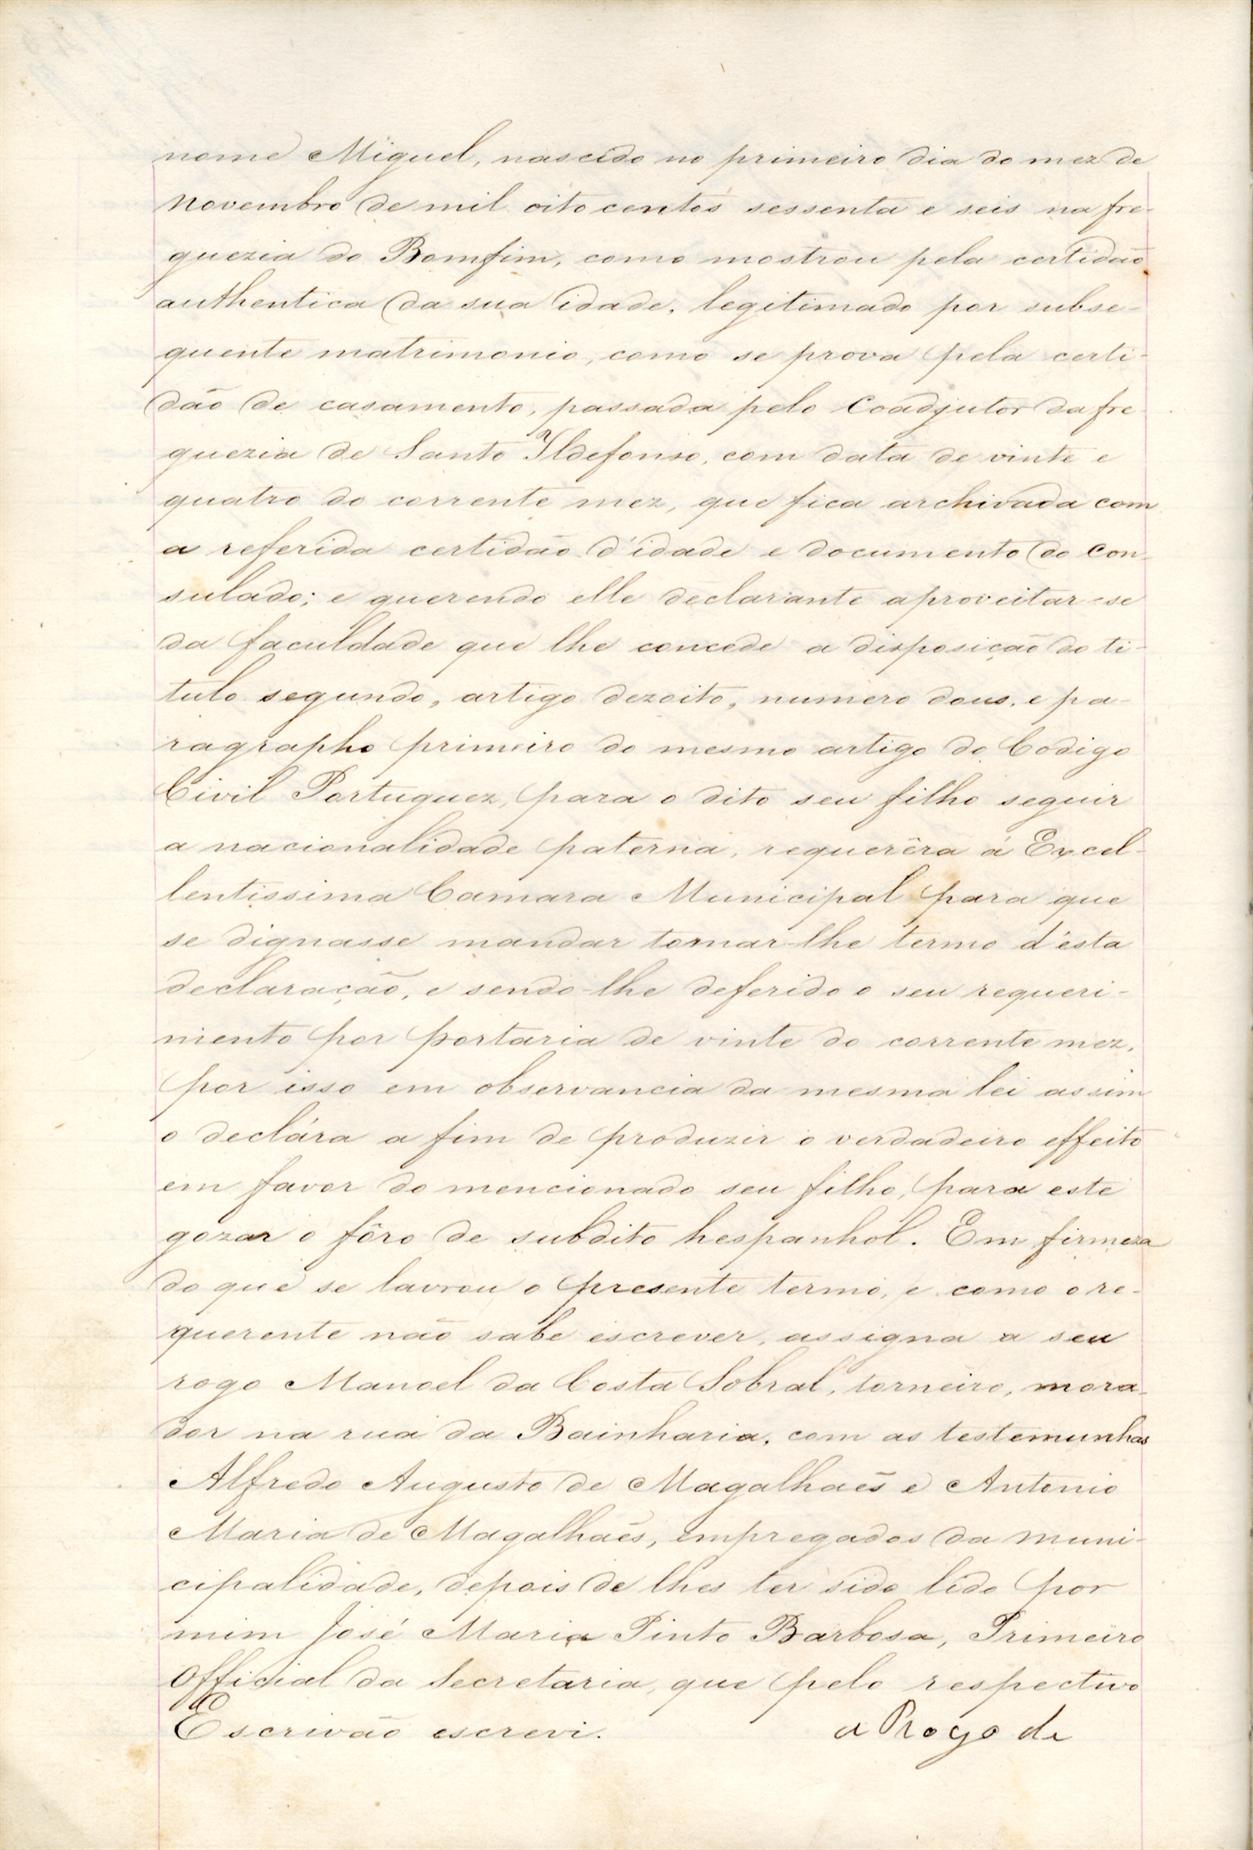 nome Miguel, nascido no primeiro dia do mez de
Novembro de mil oito centos sessenta e seis na fre-
guezia do Bomfim, como mostrou pela certidão
authentica da sua idade, legitimado por subse-
quente matrimonio, como se prova pela certi-
dão de casamento, passada pelo Coadjutor da fre-
guezia de Santo Ildefonso, com data de vinte e
quatro do corrente mez, que fica archivada com
a referida certidão d'idade e documento do Con-
sulado; e querendo elle declarante aproveitar-se
da faculdade que lhe concede a disposição do ti-
tulo segundo, artigo dezoito, numero dous, e pa-
ragrapho primeiro do mesmo artigo do Codigo
Civil Portuguez, para o dito seu filho seguir
a nacionalidade paterna, requerêra á Excel-
lentissima Camara Municipal para que
se dignasse mandar tomar-lhe termo d'esta
declaração, e sendo-lhe deferido o seu requeri-
mento por portaria de vinte do corrente mez,
por isso em observancia da mesma lei assim
o declára a fim de produzir o verdadeiro effeito
em favor do mencionado seu filho, para este
gozar o fôro de subdito hespanhol. Em firmeza
do que se lavrou o presente termo, e como o re-
querente não sabe escrever, assigna a seu
rogo Manoel da Costa Sobral, torneiro, mora-
dor na rua da Bainharia, com as testemunhas
Alfredo Augusto de Magalhaẽs e Antonio
Maria de Magalhaẽs, empregados da muni-
cipalidade, depois de lhes ter sido lido por
mim José Maria Pinto Barbosa, Primeiro
Official da Secretaria, que pelo respectivo
Escrivão escrevi. a Rogo de